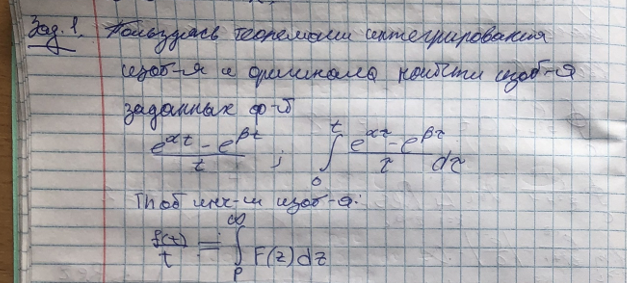 Зад. 1. Пользуясь теоремами интегрирования
изоб-я и оригинала найти изоб-я
заданных ф-й
e^{αt} - e^{βt} / t ; ∫_0^t e^{ατ} - e^{βτ} / τ dτ
Th об инт-ии изоб-я:
f(t)/t ≓ ∫_p^∞ F(z)dz